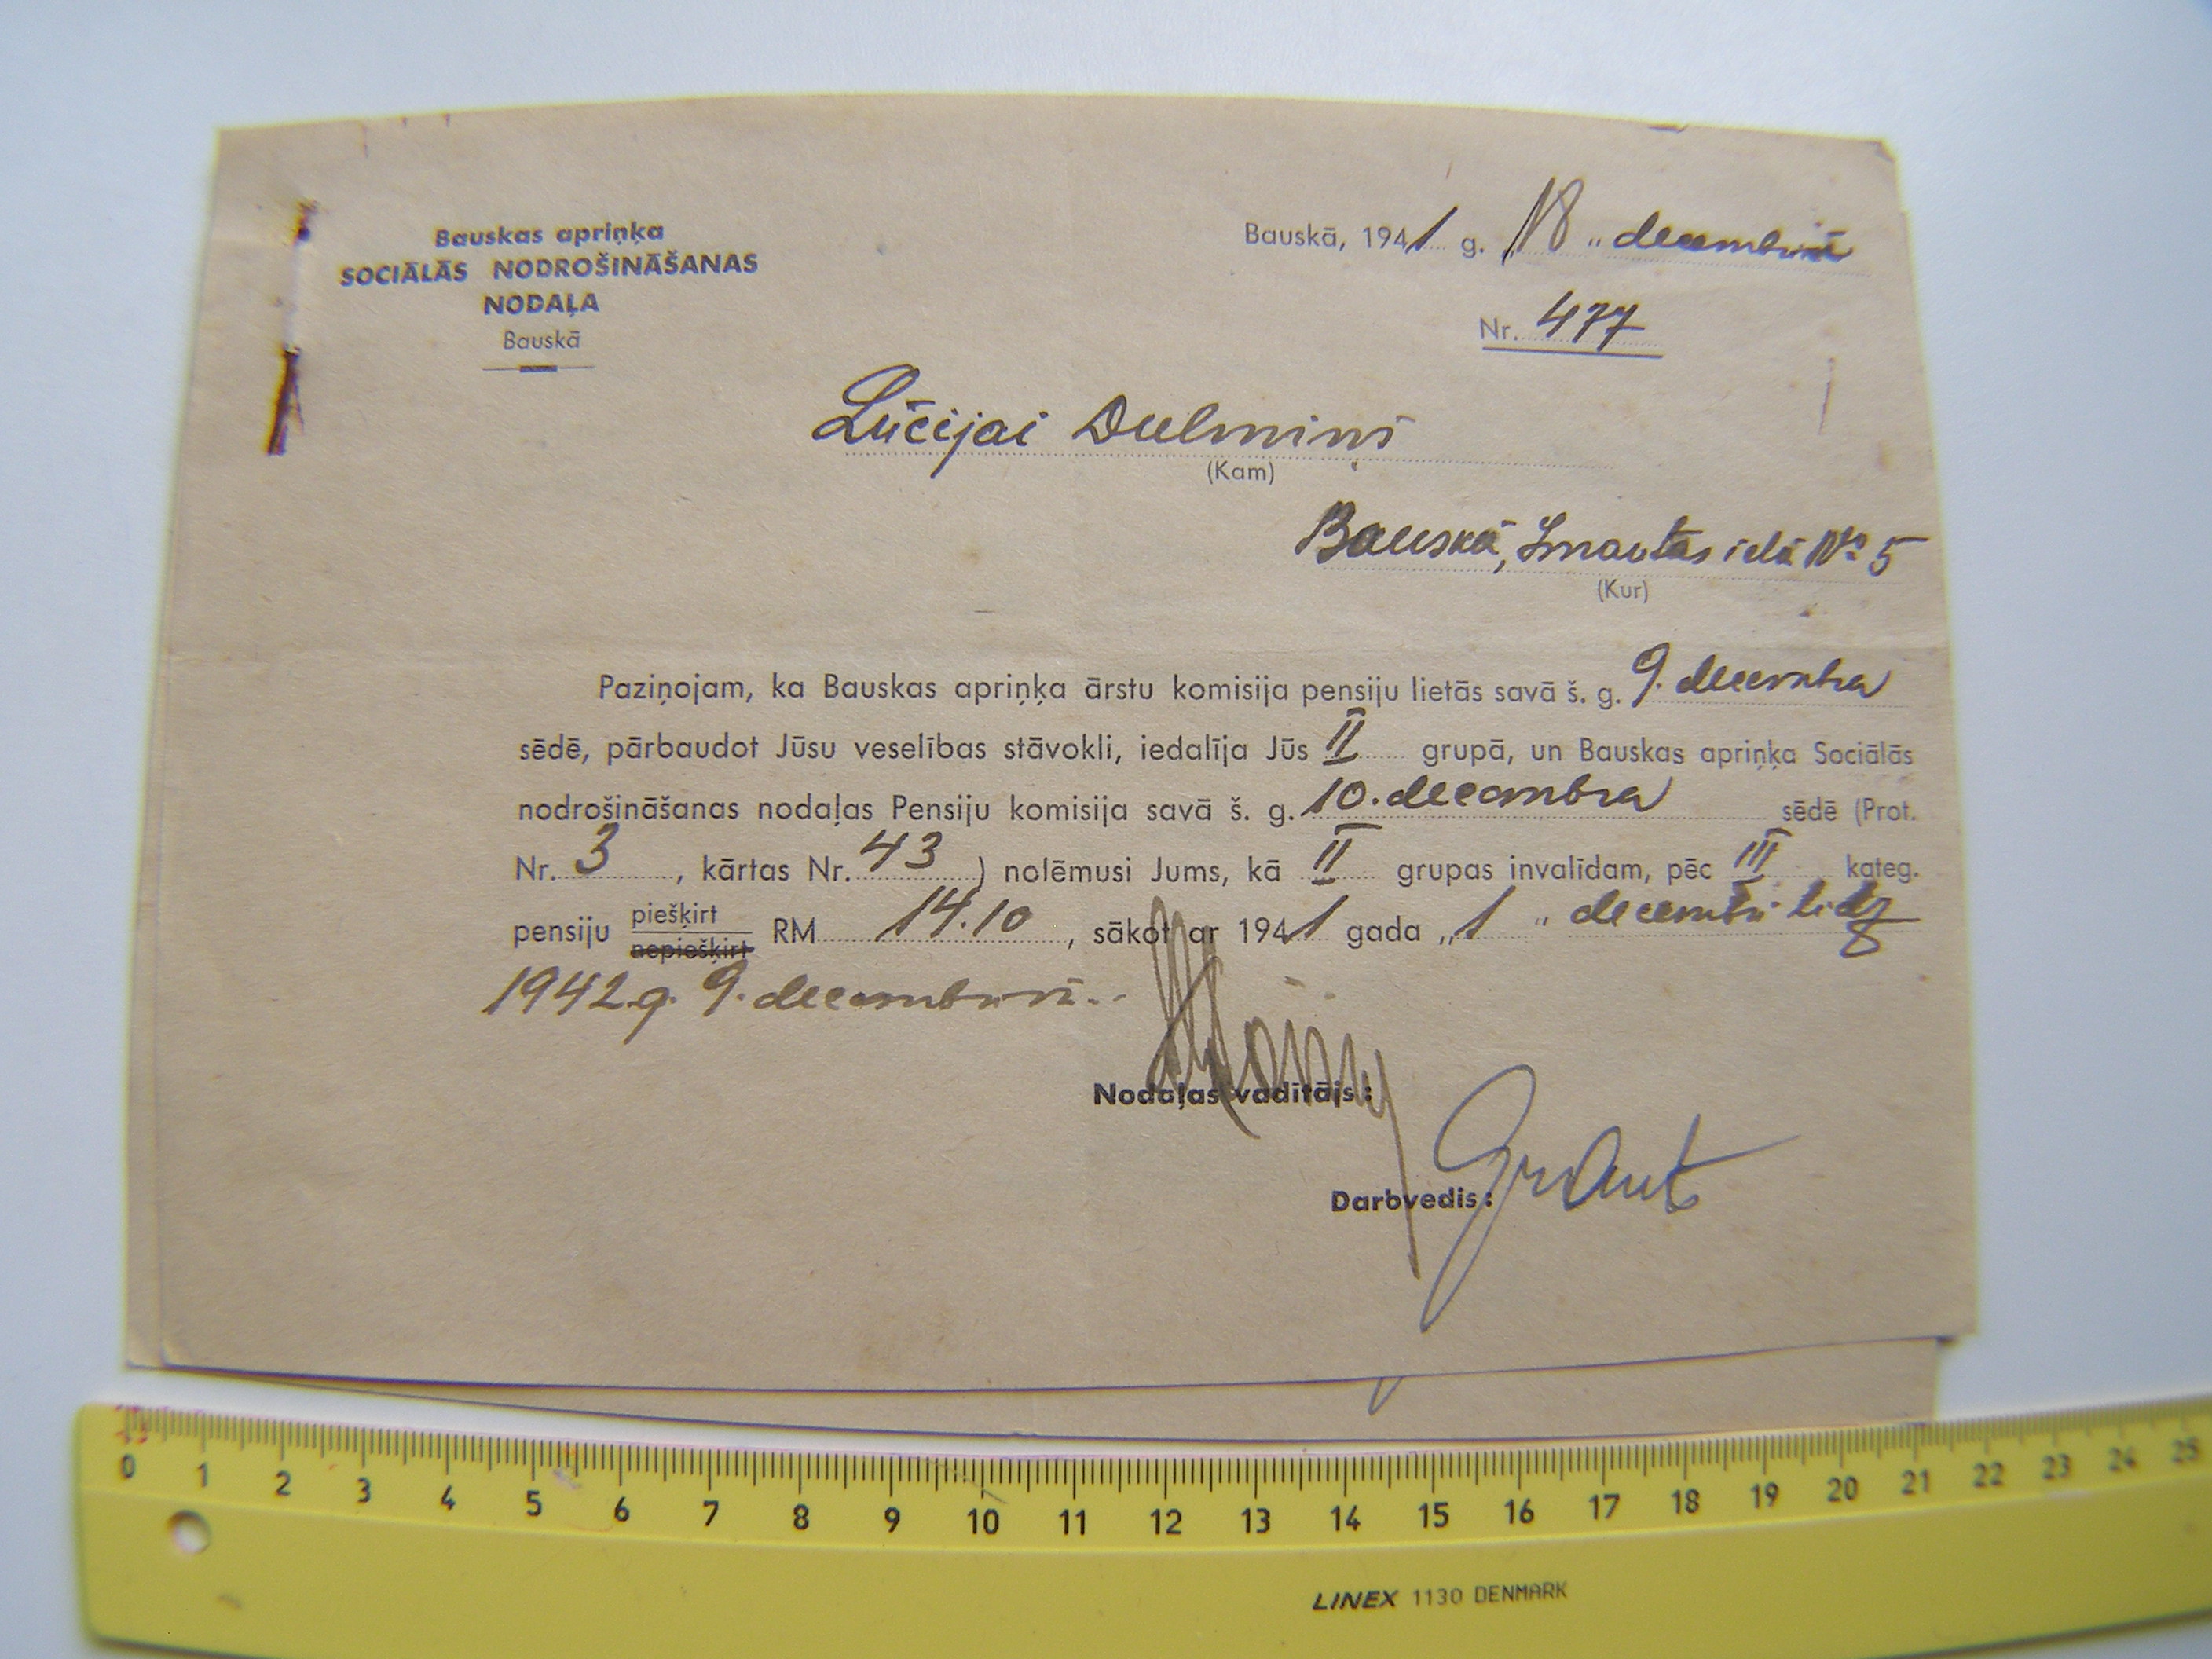 Bauskas apriņķa
SOCIĀLĀS NODROŠINĀŠANAS
NODAĻA
Bauskā
Bauskā, 1941 g. „18" decembrī
Nr. 477
Lūcijai Dulmiņi
(Kam)
Bauskā, ielā № 5
(Kur)
Paziņojam, ka Bauskas apriņķa ārstu komisija pensiju lietās savā š. g. 9. decembra
sēdē, pārbaudot Jūsu veselības stāvokli, iedalīja Jūs II grupā, un Bauskas apriņķa Sociālās
nodrošināšanas nodaļas Pensiju komisija savā š. g. 10. decembra sēdē (Prot.
Nr. 3, kārtas Nr. 43) nolēmusi Jums, kā II grupas invalīdam, pēc III kateg.
pensiju piešķirt RM 14.10, sākot ar 1941 gada „1" decembri līdz
nepiešķirt
1942 g. 9. decembrim.
Nodaļas vadītājs:
Darbvedis:
0 1 2 3 4 5 6 7 8 9 10 11 12 13 14 15 16 17 18 19 20 21 22 23 24 25
LINEX 1130 DENMARK